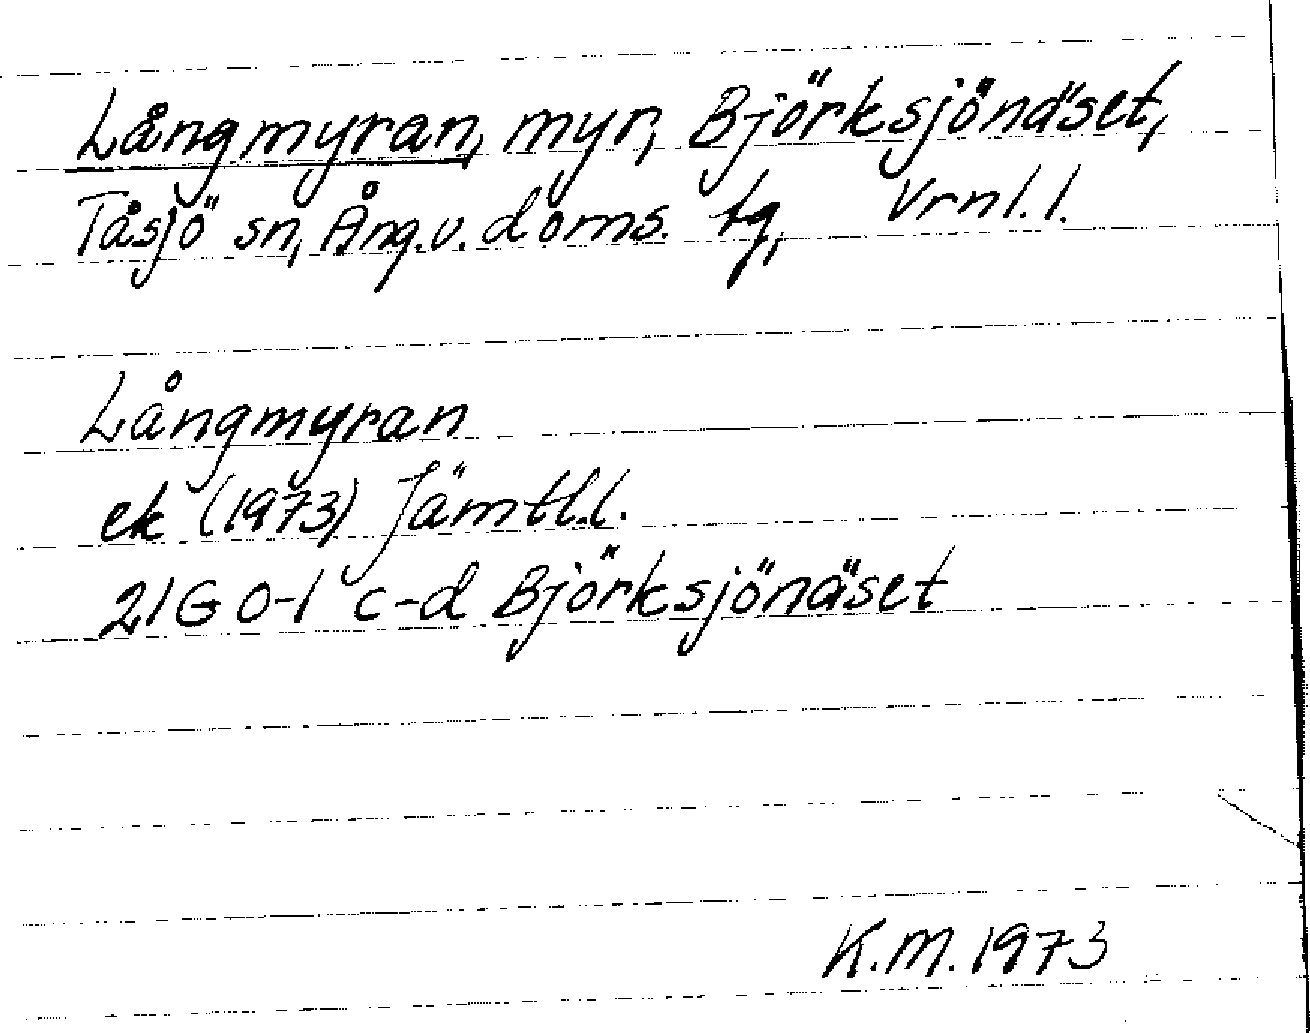 Långmyran, myr, Björksjönäset,
Tåsjö sn, Ång.v. doms. tg, Vrnl.l.
Långmyran
ek (1973) Jämtl.l.
21G 0-1 c-d Björksjönäset
K.M. 1973